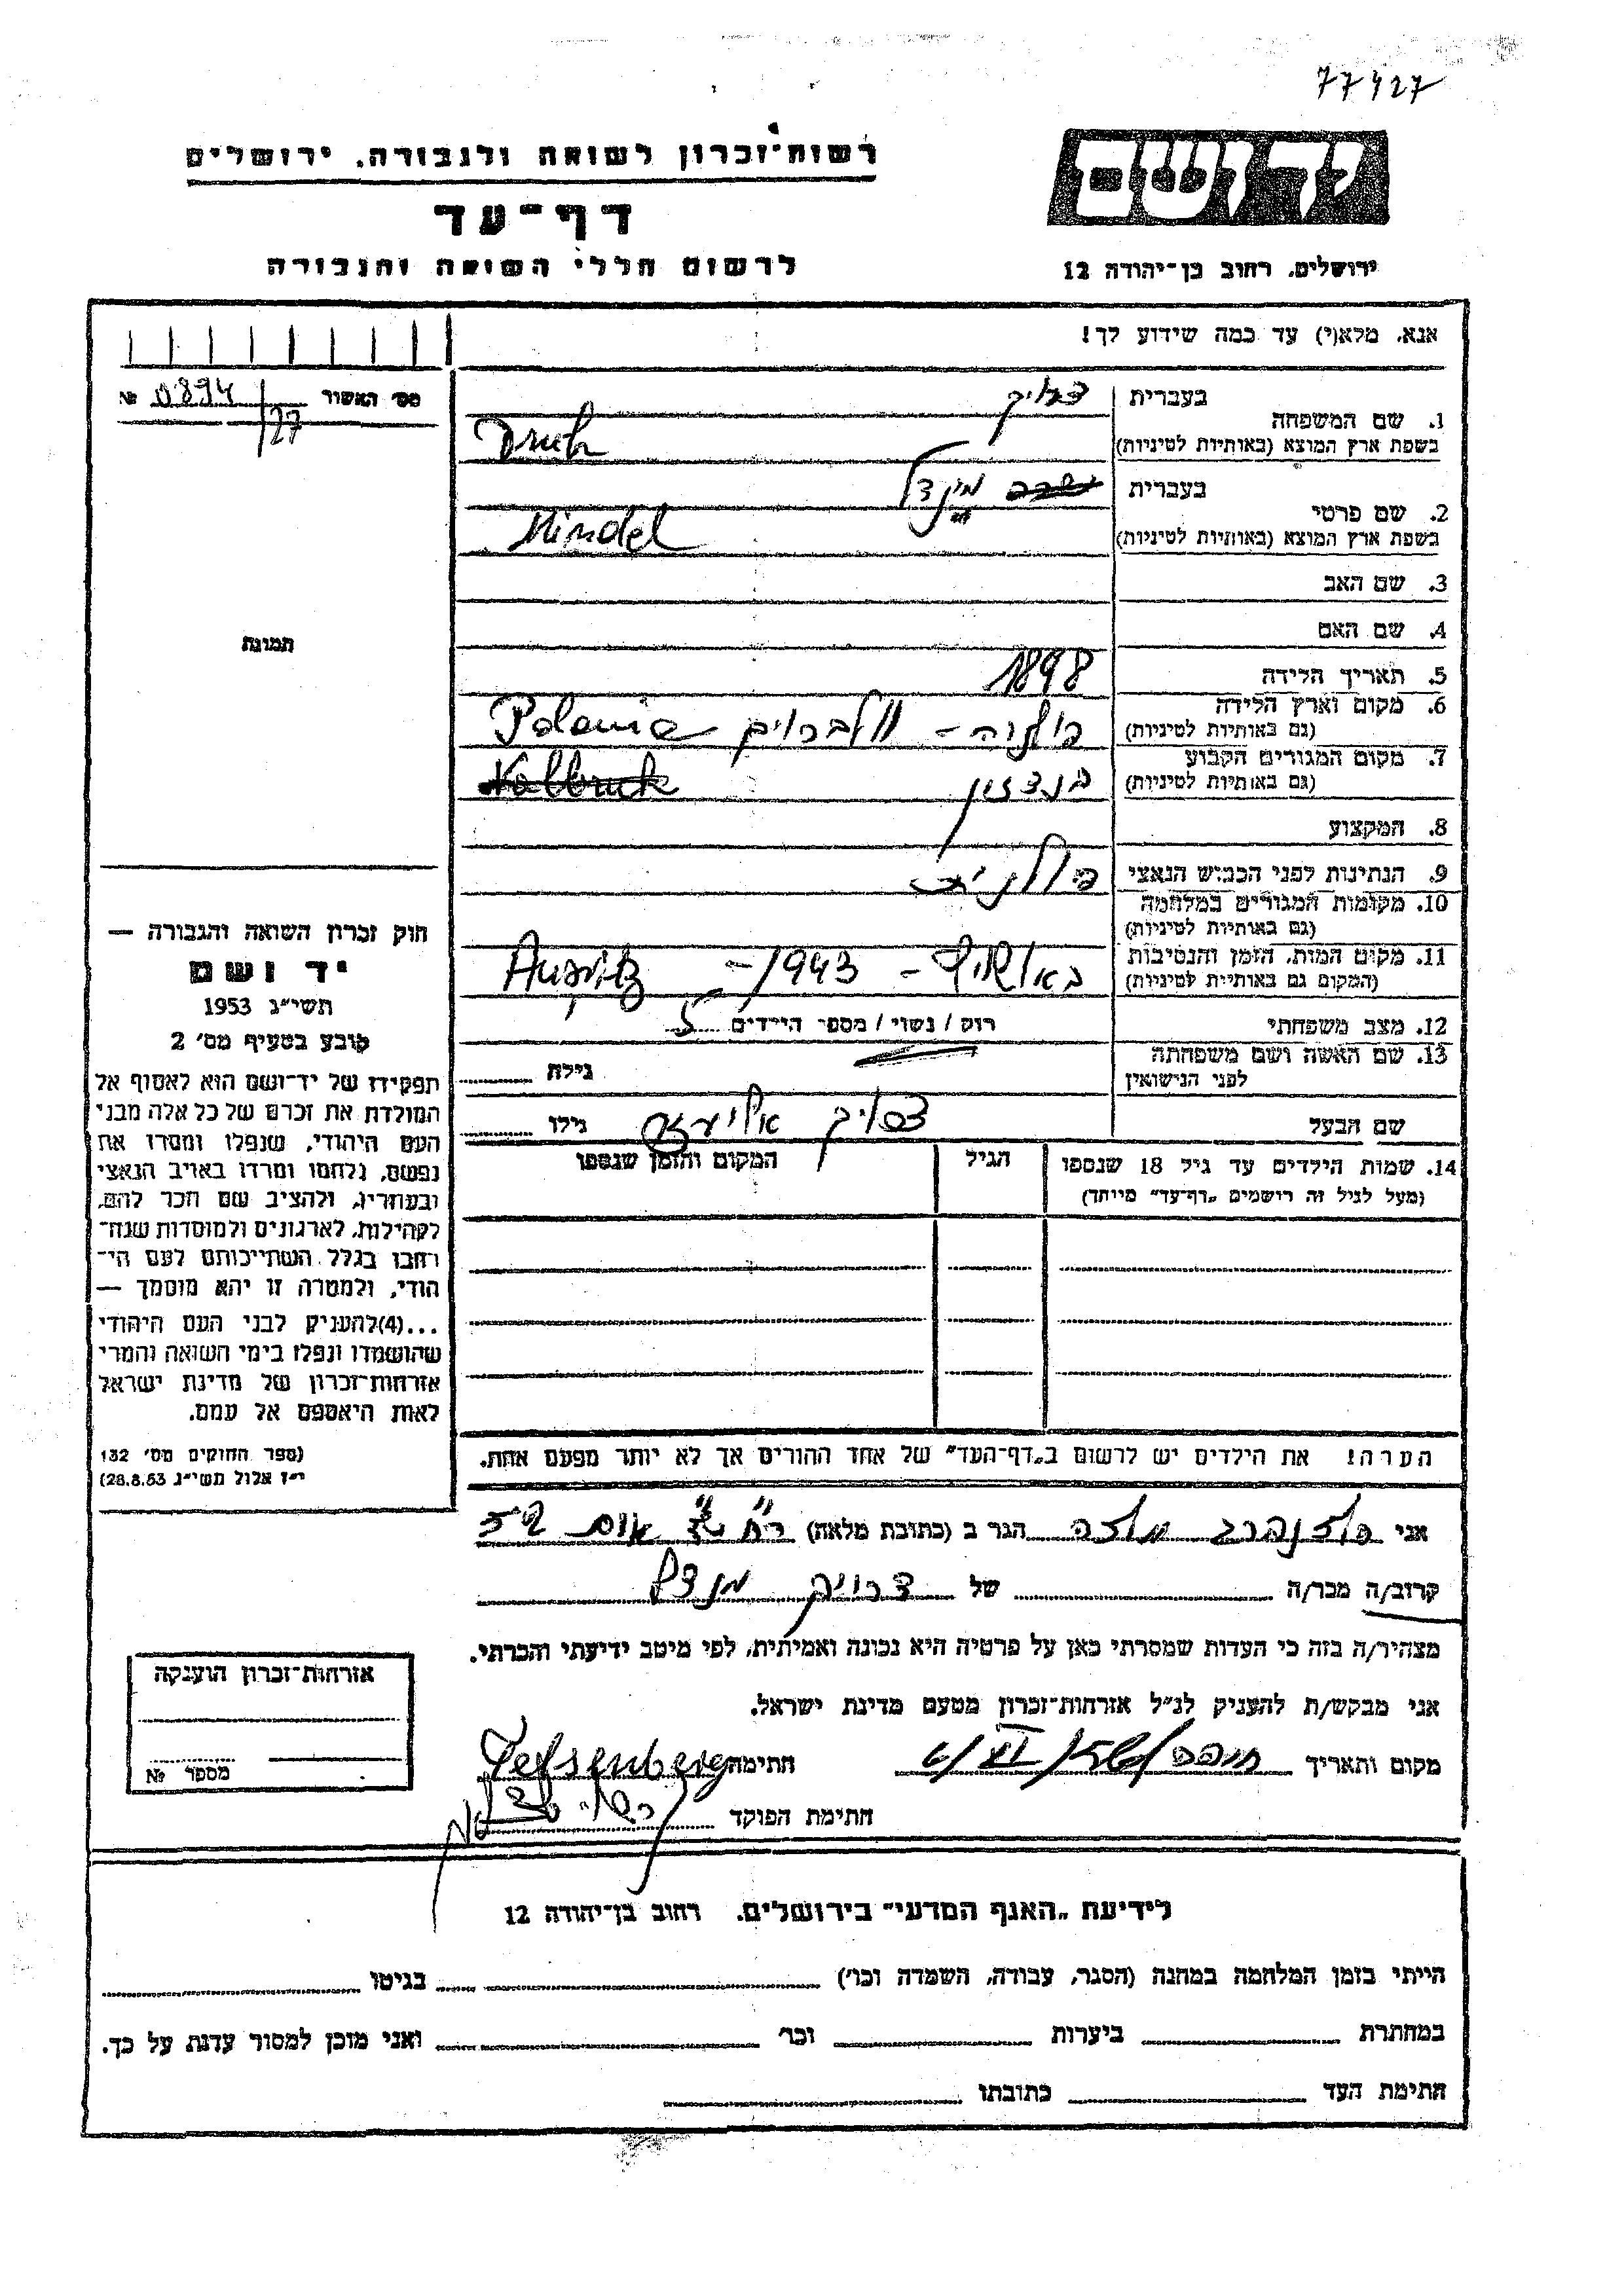 77427
רשות־זכרון לשואה ולגבורה. ירושלים
דף־עד
לרשום חללי השואה והגבורה
יד ושם
ירושלים, רחוב בן־יהודה 12
אנא, מלא(י) עד כמה שידוע לך!
מס׳ האשור 0894 №
/27
1. שם המשפחה
בעברית
בשפת ארץ המוצא (באותיות לטיניות) Druk
2. שם פרטי
בעברית מינדל
בשפת ארץ המוצא (באותיות לטיניות) Mindel
3. שם האב
4. שם האם
5. תאריך הלידה 1898
6. מקום וארץ הלידה
(גם באותיות לטיניות) פולניה – וולברוים Polania
7. מקום המגורים הקבוע
(גם באותיות לטיניות) בנדזין
8. המקצוע
9. הנתינות לפני הכבוש הנאצי פולנית
10. מקומות המגורים במלחמה
(גם באותיות לטיניות)
11. מקום המות, הזמן והנסיבות
(המקום גם באותיות לטיניות) – 1943 –
12. מצב משפחתי רוק / נשוי / מספר הילדים 5
13. שם האשה ושם משפחתה
לפני הנישואין
גילה
שם הבעל אליעזר גילו
14. שמות הילדים עד גיל 18 שנספו
(מעל לגיל זה רושמים „דף־עד״ מייחד)
הגיל
המקום והזמן שנספו
הערה! את הילדים יש לרשום ב„דף־העד״ של אחד ההורים אך לא יותר מפעם אחת.
תמונה
חוק זכרון השואה והגבורה —
יד ושם
תשי״ג 1953
קובע בסעיף מס׳ 2
תפקידו של יד־ושם הוא לאסוף אל
המולדת את זכרם של כל אלה מבני
העם היהודי, שנפלו ומסרו את
נפשם, נלחמו ומרדו באויב הנאצי
ובעוזריו, ולהציב שם וזכר להם,
לקהילות, לארגונים ולמוסדות שנח־
רבו בגלל השתייכותם לעם הי־
הודי, ולמטרה זו יהא מוסמך —
...(4)להעניק לבני העם היהודי
שהושמדו ונפלו בימי השואה והמרי
אזרחות־זכרון של מדינת ישראל
לאות היאספם אל עמם.
(ספר החוקים מס׳ 132
י״ז אלול תשי״ג 28.8.53)
אני הגר ב (כתובת מלאה)
קרוב/ה מכר/ה של
מצהיר/ה בזה כי העדות שמסרתי כאן על פרטיה היא נכונה ואמיתית, לפי מיטב ידיעתי והכרתי.
אני מבקש/ת להעניק לנ״ל אזרחות־זכרון מטעם מדינת ישראל.
מקום ותאריך חתימה
חתימת הפוקד
אזרחות־זכרון הוענקה
מספר №
לידיעת „האגף המדעי״ בירושלים. רחוב בן־יהודה 12
הייתי בזמן המלחמה במחנה (הסגר, עבודה, השמדה וכו׳) בגיטו
במחתרת ביערות וכו׳ ואני מוכן למסור עדות על כך.
חתימת העד כתובתו